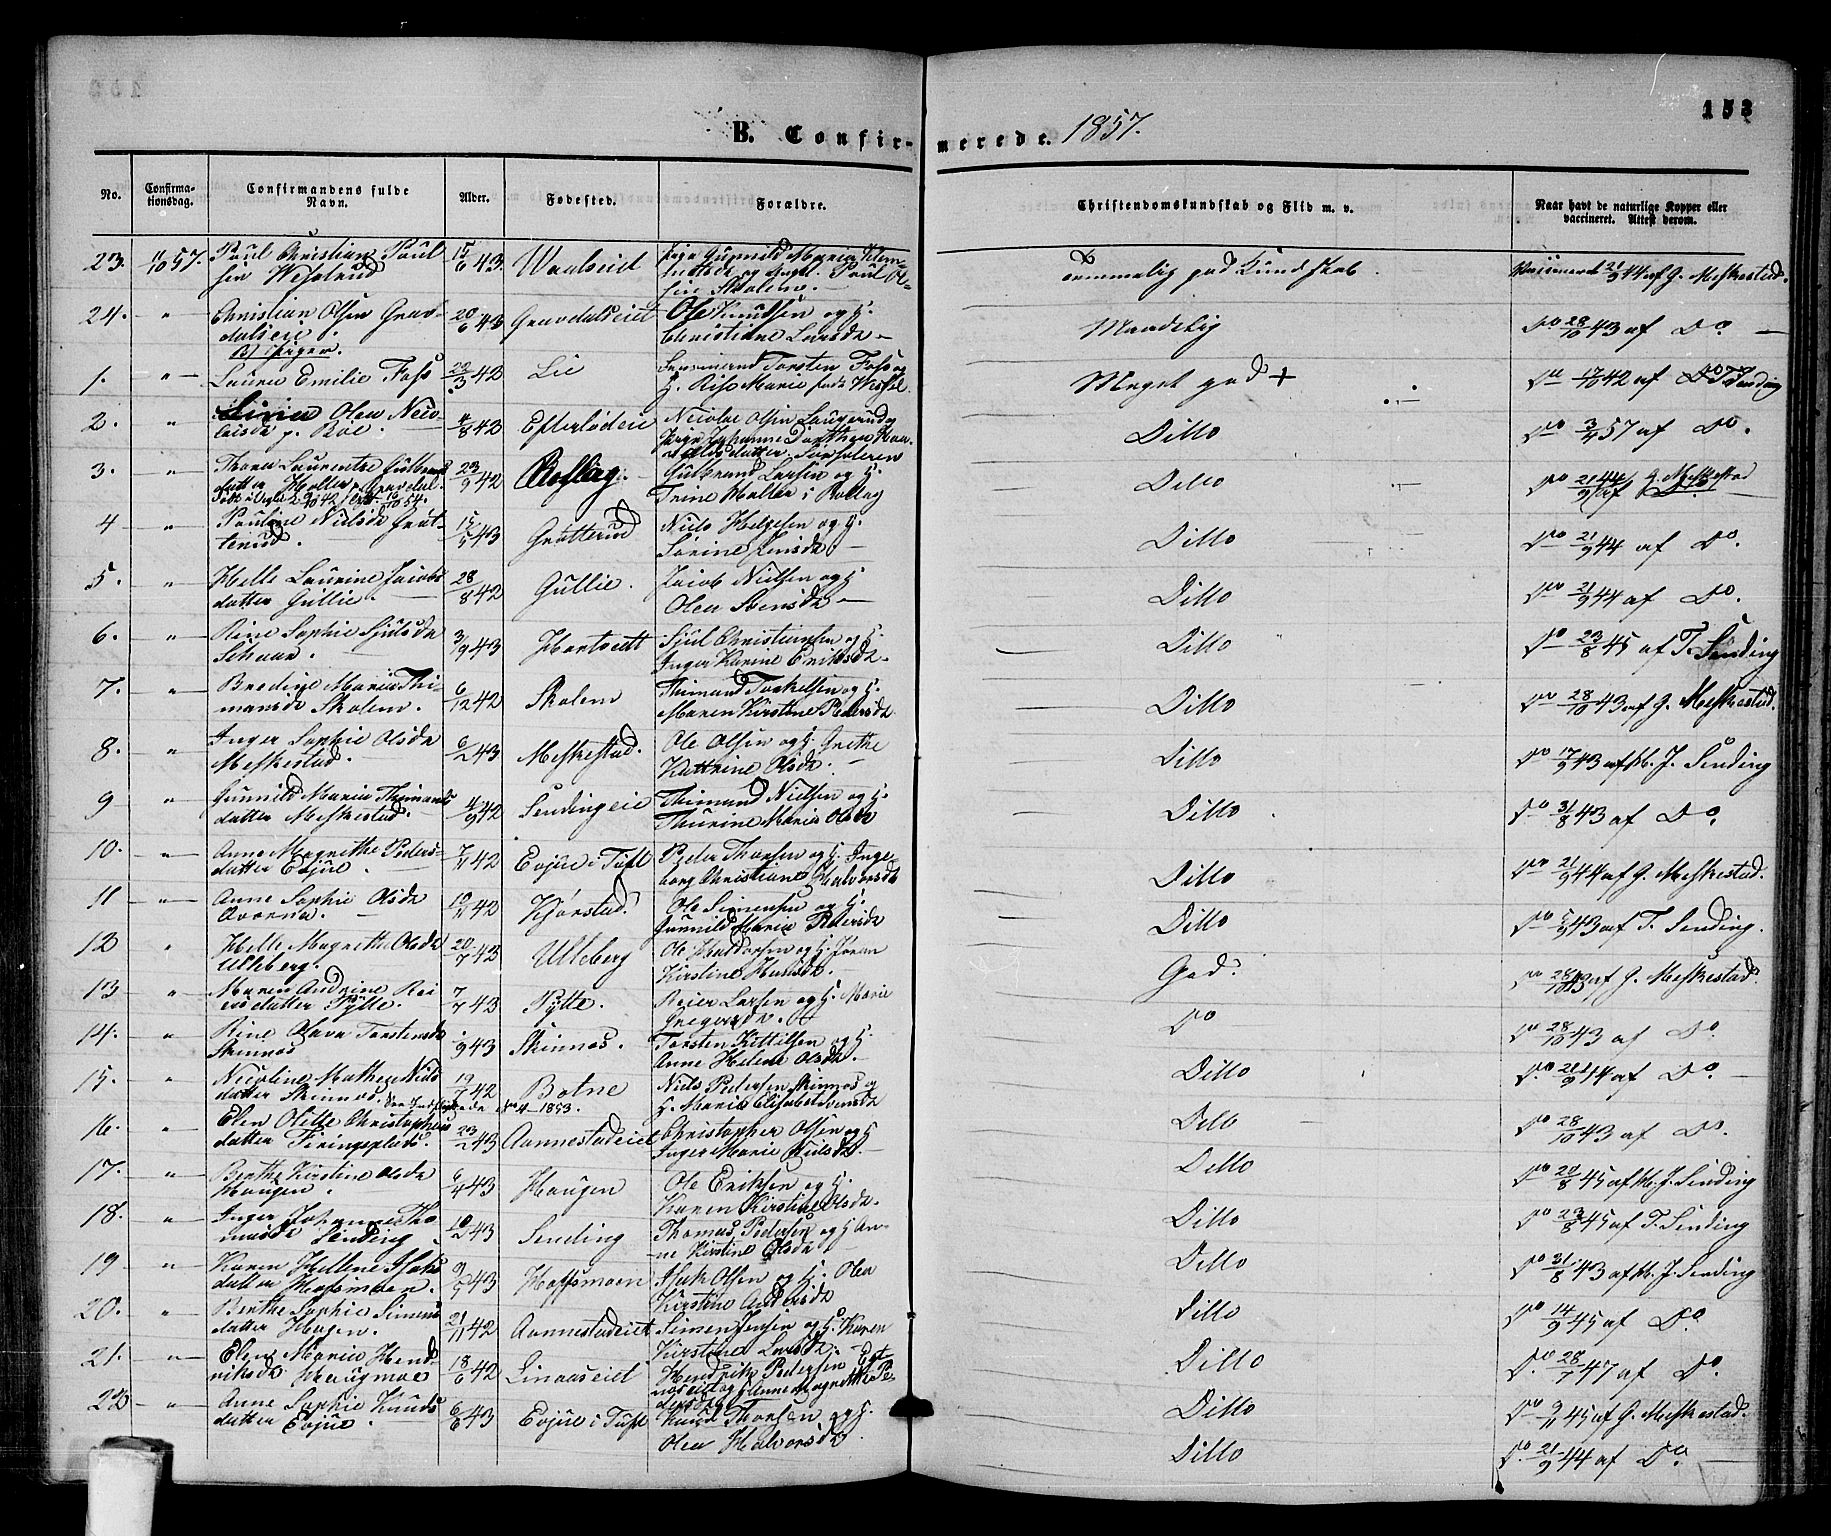 153
B. Confirmerede. 1857.
No. Confirmationsdag. Confirmandens fulde Navn. Alder. Fødested. Forældre. Christendomskundskab og Flid m. v. Naar havt de naturlige Kopper eller vaccineret. Attest derom.
23. 11/10 57. Paul Christian Paul
sen 15/6 43. Pige Gunnild Maria
og Ungk. Paul Ol
sen Skolem.
temmelig god Kundskab 21/9 44 af G. Meskestad.
24. " Christian Olsen Grav
dalseie. 20/6 43 Gravdalseiet Ole Knudsen og H.
Christiane Larsdr
Maadelig Do 28/10 43 af Do
B) Piger.
1. " Laura Emilie Foss 22/3 42 Lie Torsten Foss og
H. Marie født
Meget god + Do 17/10 42 af T. Sending
2. " Olea Nico
laisdr p. Bøe. 42 Efterlødeie Nicolai Olsen Laugerud og
Pige Johanne Dorthea
Ditto Do 3/4 57 af Do.
3. " Thora Laurentze Gulbrands
datter Holter p. Gravdal. 23/9 42 Rollag. Gulbrand Larsen og H.
Trine Holter i Rollag
Ditto Do 21/9 44 af G. Meskestad
4 " Pauline Nielsdr Grøt
terud. 15/5 43 Grøtterud Niels Helgesen og H.
Sørine
Ditto Do 21/9 44 af Do.
5. " Helle Laurine Jacobs
datter Gullie. 28/8 42 Gullie. Jacob Nielsen og H.
Olea Svensdr
Ditto Do 21/9 44 af Do.
6. " Rine Sophie Sjulsdr
3/9 43 Hartvedt Sjul Christiansen og H.
Inger Karine Eriksdr.
Ditto Do 23/8 45 af T. Sending
7. " Bredine Maria Thi
mansdr Skolem. 6/12 42 Skolem Thimand Torkelsen og H.
Maren Kirstine Pedersdr
Ditto Do 28/10 43 af G. Meskestad.
8. " Inger Sophie Olsdr
Meskestad. 6/2 43 Meskestad. Ole Olsen og H. Grethe
Kattrine Olsdr.
Ditto Do 17/9 43 af J. Sending
9 " Gunnild Maria Thimands
datter Meskestad. 4/9 42 Sendingeie Thimand Nielsen og H.
Thurine Maria Olsdr
Ditto Do 31/8 43 af Do.
10. " Anne Magrethe Peders
datter Evjue. 7/11 42 Evjue i Tuft Peder Thorsen og H. Inge
borg Christiane Halvorsdr
Ditto Do 21/9 44 af G. Meskestad.
11 " Anne Sophie Olsdr
Qvarna. 42 Kjørstad. Ole Simensen og H.
Gunnild Maria Pedersdr
Ditto Do 43 af T. Sending.
12 " Helle Magrethe Olsdr
Ulleberg. 20/7 43 Ulleberg Ole Haldorsen og H. Jøran
Kirstine Hansdr.
God. Do 28/10 43 af G. Meskestad.
13 " Maren Andrine Rei
ersdatter Pytte. 7/7 43 Pytte. Reier Larsen og H. Marie
Gregersdr.
Do
14. " Rine Olava Torstensdr
Skinnæs 43 Skinnæs. Torsten Kittilsen og H.
Anne Helene Olsdr.
Ditto Do 28/10 43 af Do
15. " Nicoline Mathea Niels
datter Skinnæs. 19/7 42 Botne Niels Pedersen Skinnæs og
H. Marie Elisabet
No 4 1853.
Ditto Do af Do
16. " Elen Olille Christophers
datter 23/2 43 Aannestadeiet Christopher Olsen og H
Inger Marie Nielsdr.
Ditto Do 28/10 43 af Do.
17. " Berthe Kirstine Olsdr
Haugen. 6/4 43 Haugen Ole Eriksen og H.
Karen Kirstine Olsdr.
Ditto Do 20/8 45 af J. Sending
18. " Inger Johanne Tho
masdr Sending 10/2 43 Sending Thomas Pedersen og H. An
ne Kirstine Olsdr
Ditto Do 23/8 45 af T. Sending
19 " Karen Hellene Isaks
datter Hofsmoen. 9/5 43 Hoffsmoen Isak Olsen og H. Olea
Kirstine Andersdr
Ditto Do 31/8 43 af J. Sending
20. " Berthe Sophie Simens
datter Hagen. 21/11 42 Aannestadeiet Simen Jensen og H. Karen
Kirstine Larsdr.
Ditto Do 14/9 45 af Do.
21. " Elen Maria Hend
riksdr Haugmoe 18/6 42 Linaaseiet Hendrik Pedersen
og H. Anne Magrethe Pe
dersdr.
Ditto Do 28/7 47 af Do
22 " Anne Sophie Knuds
datter Evjue. 6/6 43 Evjue i Tuft Knud Thorsen og H.
Olea Halvorsdr.
Ditto Do 9/11 45 af G. Meskestad.
Ditto Do 21/9 44 af Do.